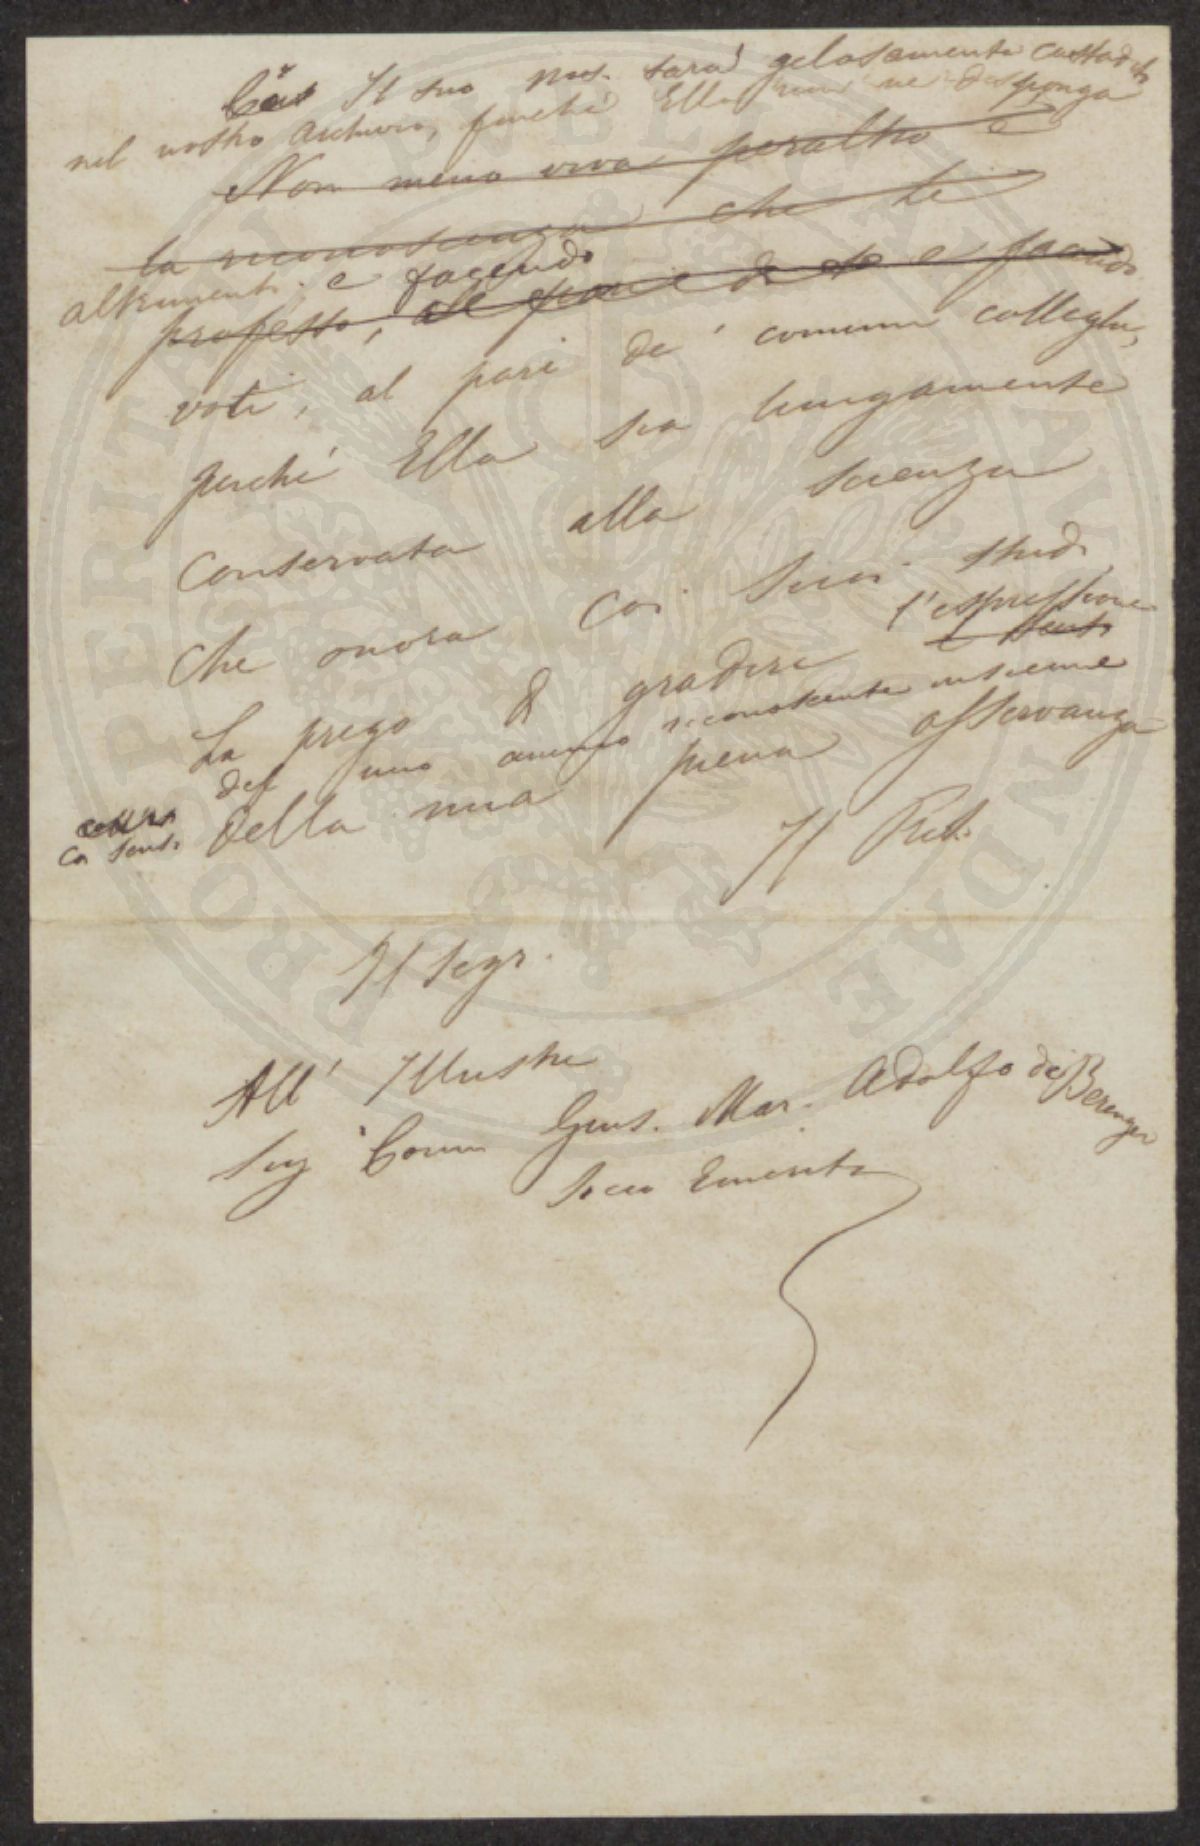 Il suo mns. sarà gelosamente custodito
nel nostro archivio, finché Ella non ne disponga
Non meno viva peraltro è
la riconoscenza che le
altrimenti. e facendo
professo, e facendo
voti, al pari de' comuni colleghi,
perché Ella sia lungamente
conservata alla scienza
che onora coi suoi studi
l'espressione
La prego di gradire i sent.
del mio animo riconoscente insieme
della mia piena osservanza
Il Pres.
Il Segr.
All' Illustre
Sig Comm Gius. Mar. Adolfo de Berenger
Socio Emerito
PROSPERITATI PUBLICAE AUGENDAE